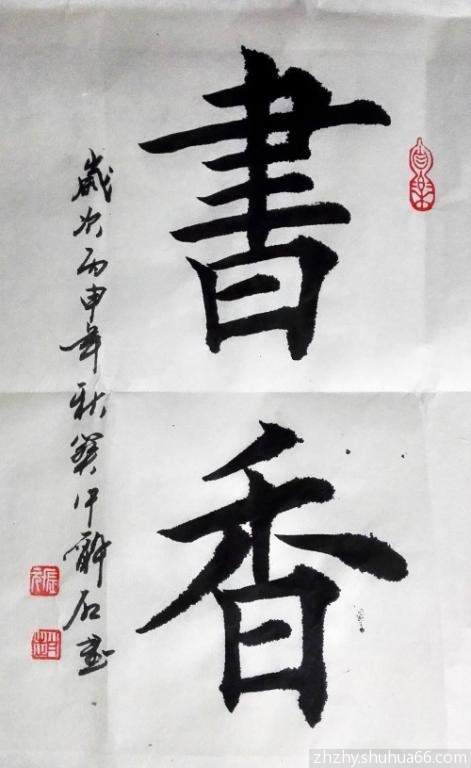 書
香
歲次丙申年秋癸
石
zhzhy.shuhua66.com